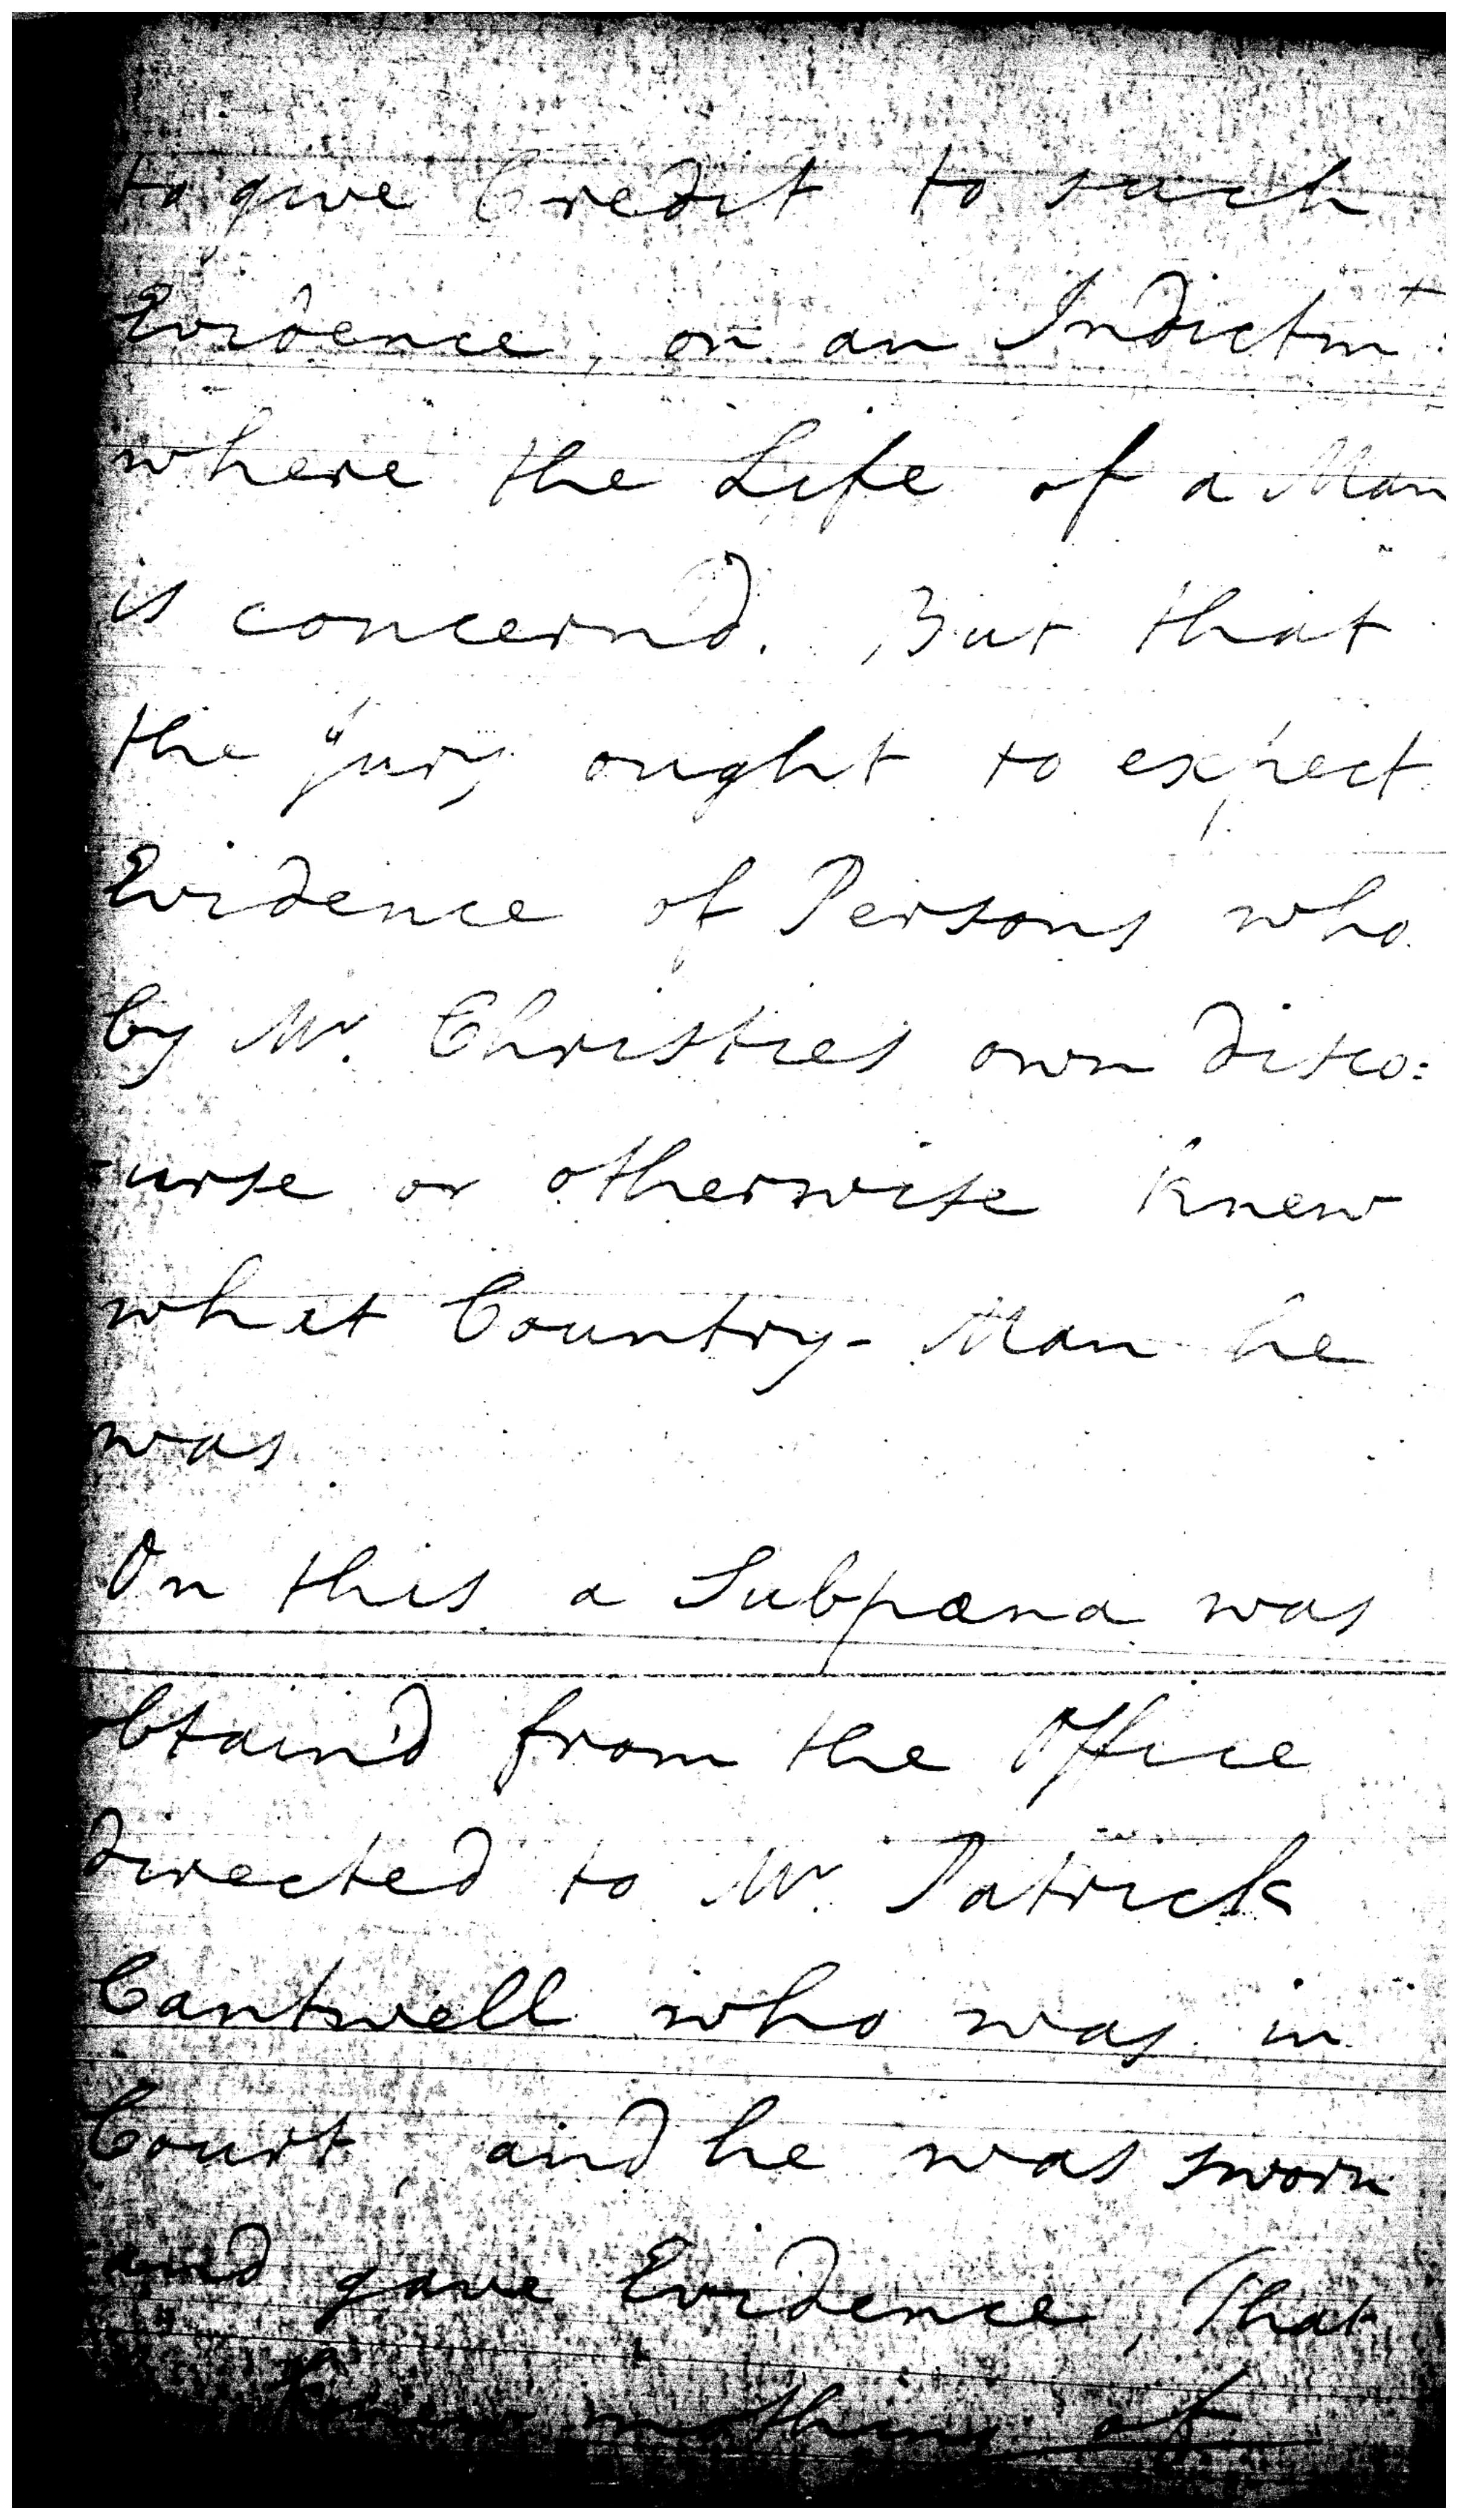 to give Credit to such
Evidence, on an Indictmt:
where the Life of a Man
is concernd. But that
the Jury ought to expect
Evidence of Persons who
by Mr. Christies own disco:
-urse or otherwise knew
what Country-Man he
was.
On this a Subpœna was
obtain'd from the Office
directed to Mr. Patrick
Cantwell who was in
Court, and he was sworn
and gave Evidence, That
knew nothing of